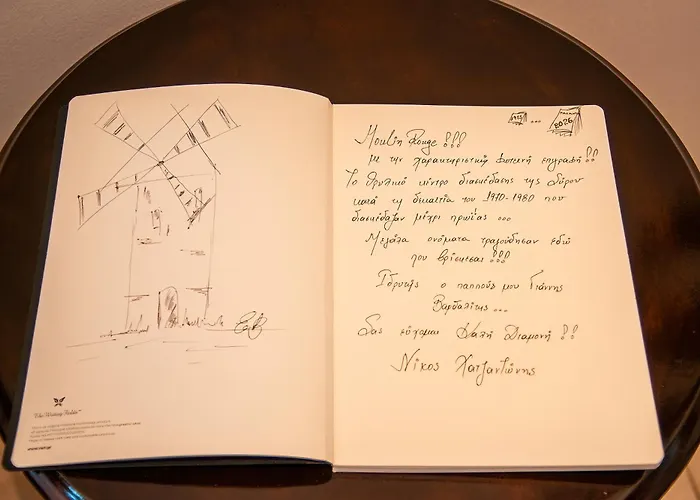 The Writing Fields™
...
2026
Moulin Rouge !!!
με την χαρακτηριστική φωτεινή επιγραφή !!
Το θρυλικό κέντρο διασκέδασης της Σύρου
κατά τη δεκαετία του 1970-1980 που
διασκέδαζαν μέχρι πρωίας ...
Μεγάλα ονόματα τραγούδησαν εδώ
που βρίσκεσαι !!!
Ιδρυτής ο παππούς μου Γιάννης
Βαρθαλίτης ...
Σας εύχομαι Καλή Διαμονή !!
Νίκος Χατζαντώνης